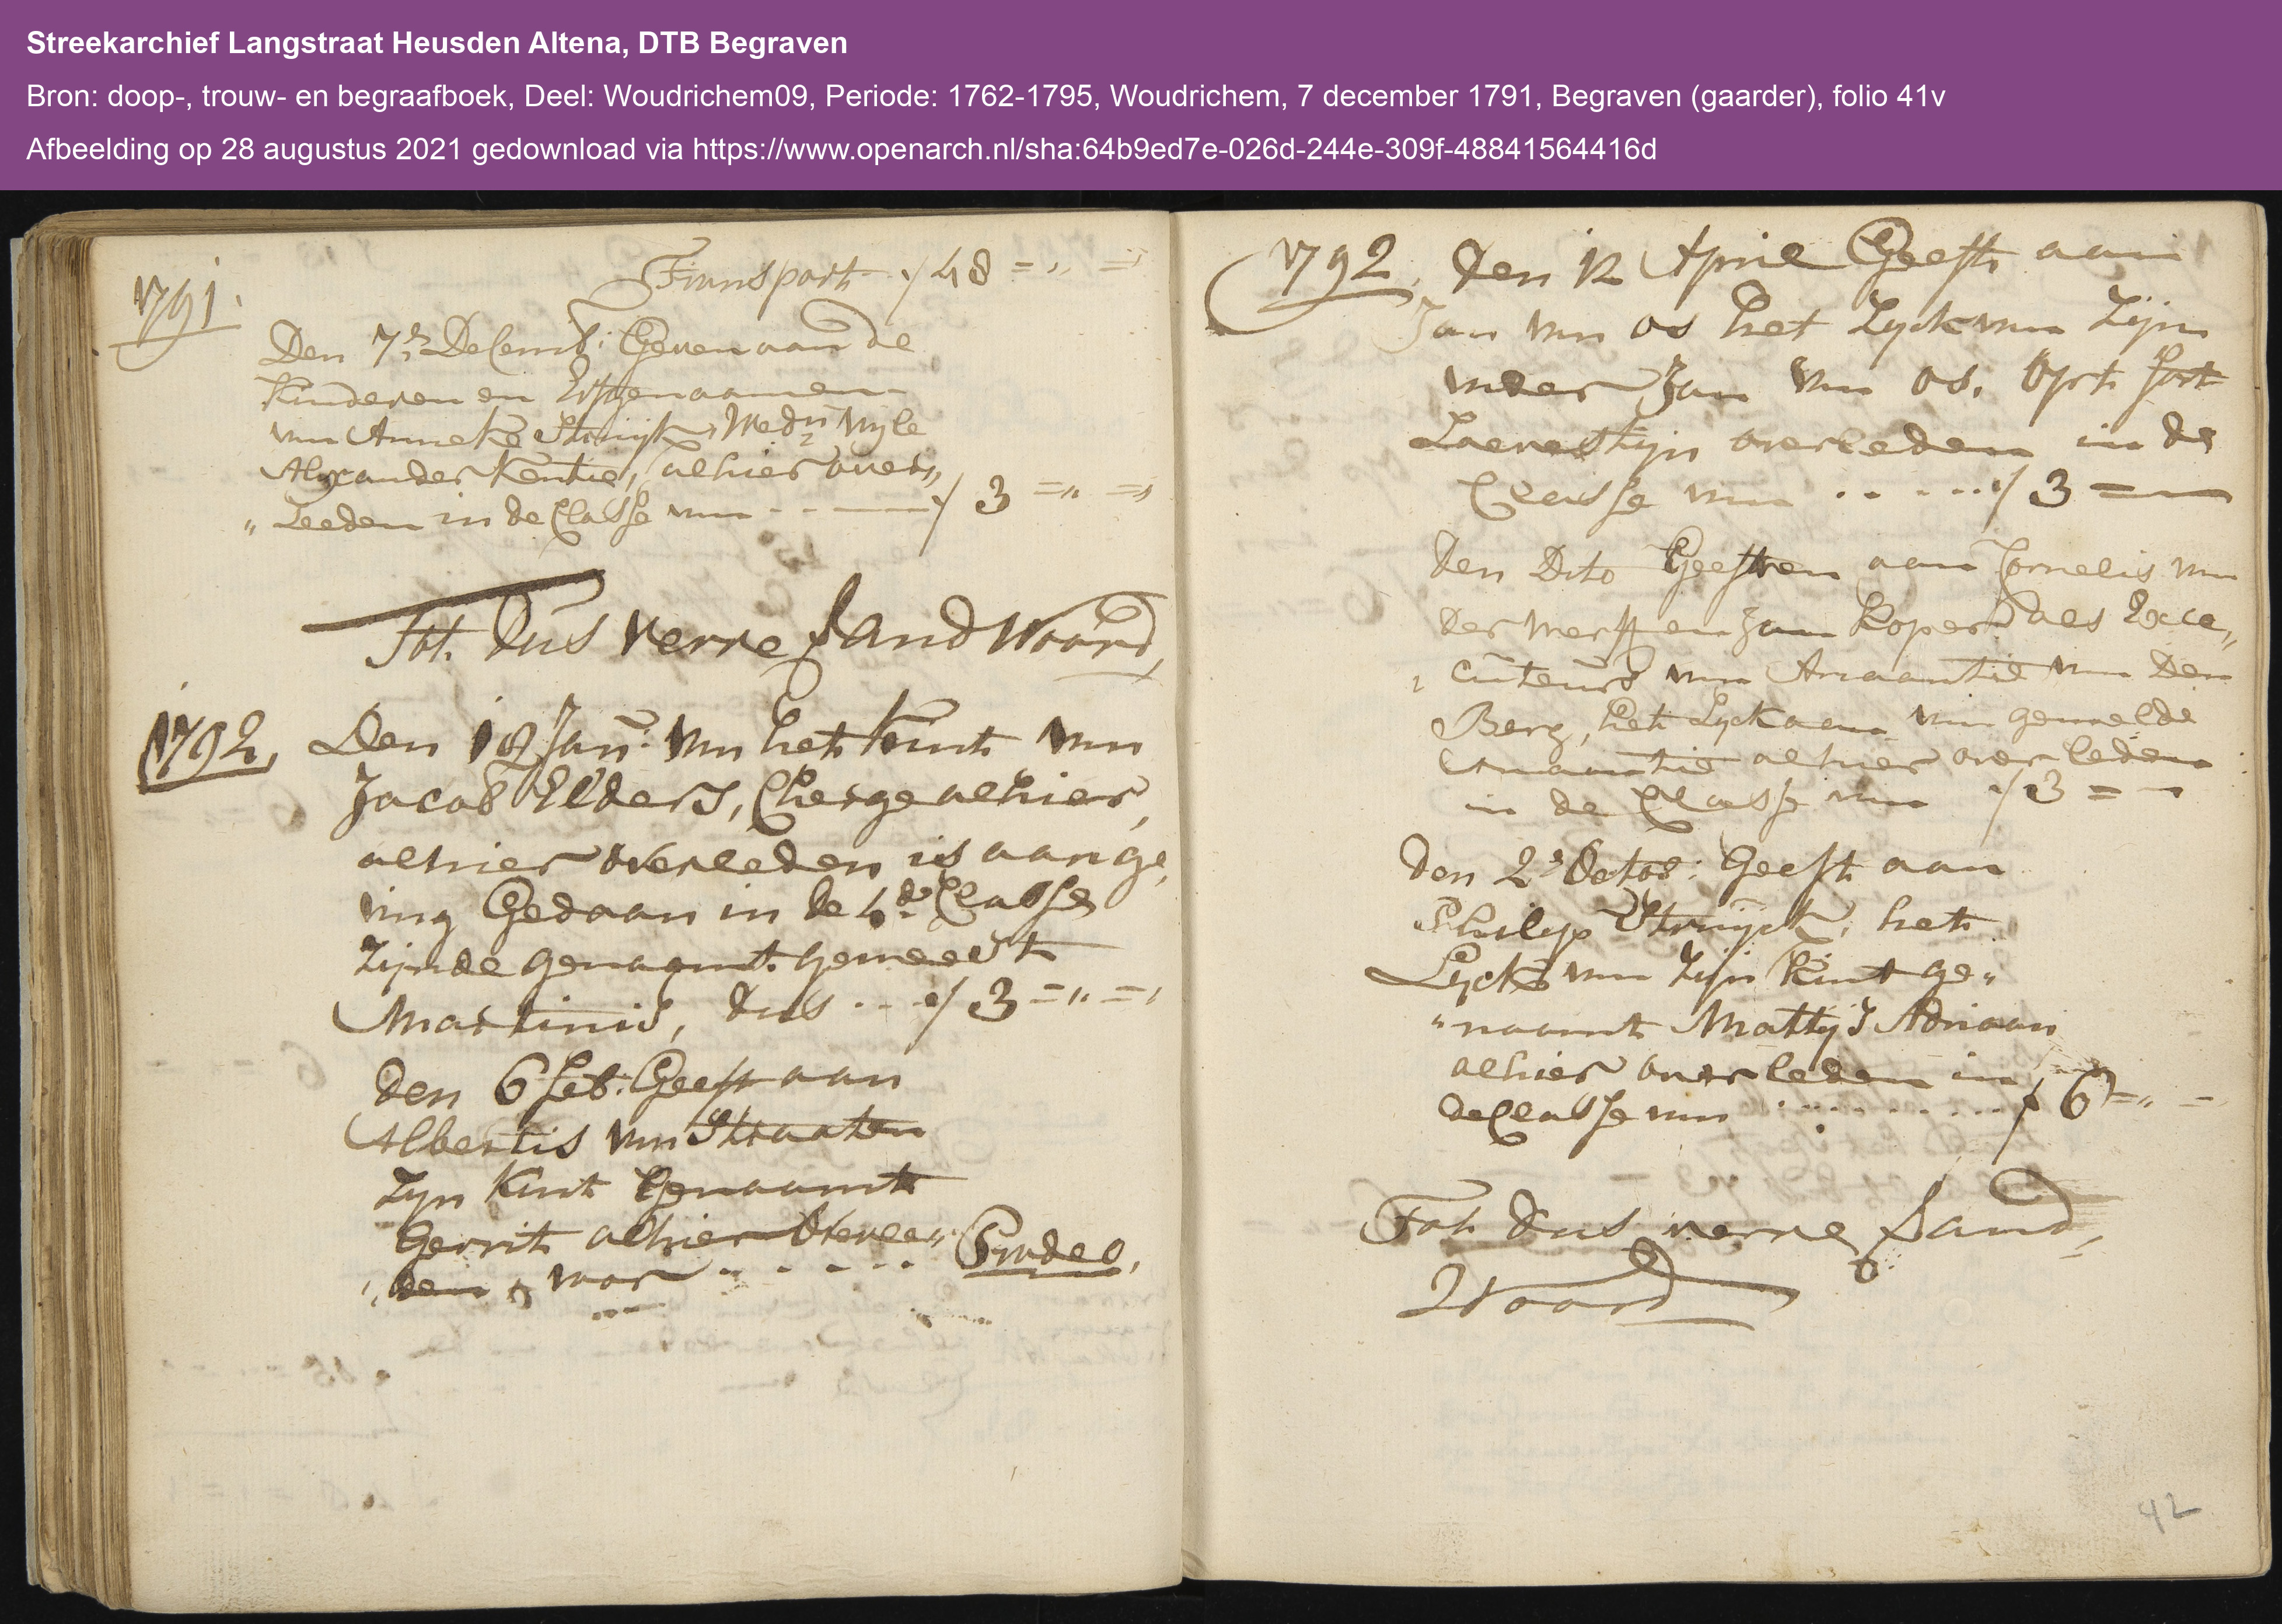 Streekarchief Langstraat Heusden Altena, DTB Begraven
Bron: doop-, trouw- en begraafboek, Deel: Woudrichem09, Periode: 1762-1795, Woudrichem, 7 december 1791, Begraven (gaarder), folio 41v
Afbeelding op 28 augustus 2021 gedownload via https://www.openarch.nl/sha:64b9ed7e-026d-244e-309f-48841564416d
Transport ƒ 48 = ,, =
1791.
Den 7e Decemb: Geven aan de
Kinderen en Erfgenaamen
van Anneke Struijk, Wedn Wijle
Alexander Kentie, alhier over,,
,, Leeden in de Classe van - - — ƒ 3 = ,, =
Tot dus verre Sandwoord
1792, Den 18 Jan: van het Kint van
Jacob Elders, Chergealhier,
alhier overleden is aange,
ving Gedaan in de 4de Classe
Zijnde genaamt gemeest
Martinis, dus - - - ƒ 3 = ,, =
den 6 Feb: Geeft aan
Albertis van Straaten
Zyn Kint Genaamt
Gerrit alhier Overlee,,
,, den, voor - - - - - - Prodeo,
1792, den 12 April Geeft aan
Jan van Os het Lyck van Zijn
vader Jan van Os, Op't fort
Loevesteyn overleden in de
Classe van - - - - - ƒ 3 =
den Dito Geeften aan Cornelis van
der Werff en Jan Kopers als Exce,,
, cuteurs van Amaantie van Den
Berg, het Lyck van gemelde
Amaantie alhier overleden
in de Classe van ƒ 3 = -
den 2e Octob: Geeft aan
Philip Struyck, het
Lyck van Zijn Kint ge,,
,, naamt Mattijs Adriaan
alhier overleden in
de Classe van - - - - - - ƒ 6 = ,, -
Tot dus verre Sand,
Woord
42